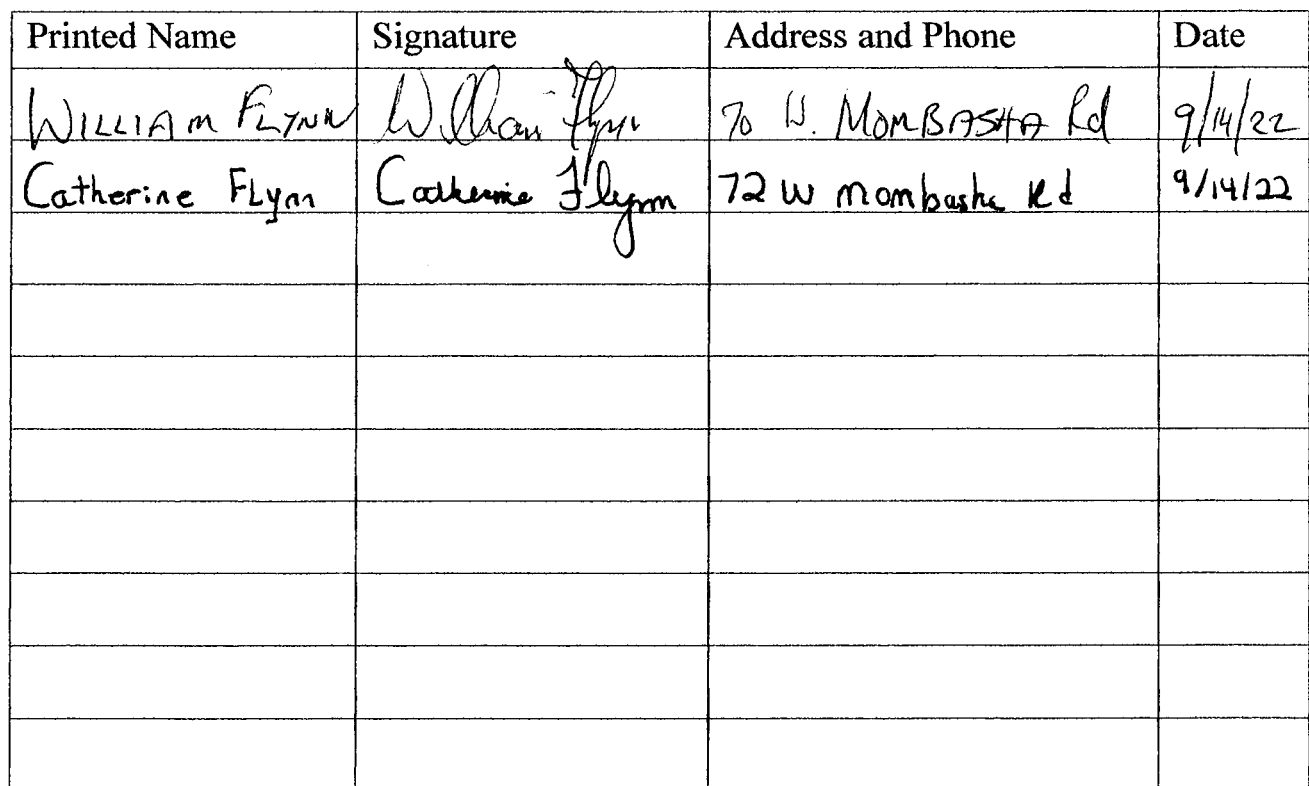 Printed Name Signature Address and Phone Date
WILLIAM FLYNN William Flynn 70 W. MOMBASHA Rd 9/14/22
Catherine FLynn Catherine Flynn 72 W Mombasha Rd 9/14/22